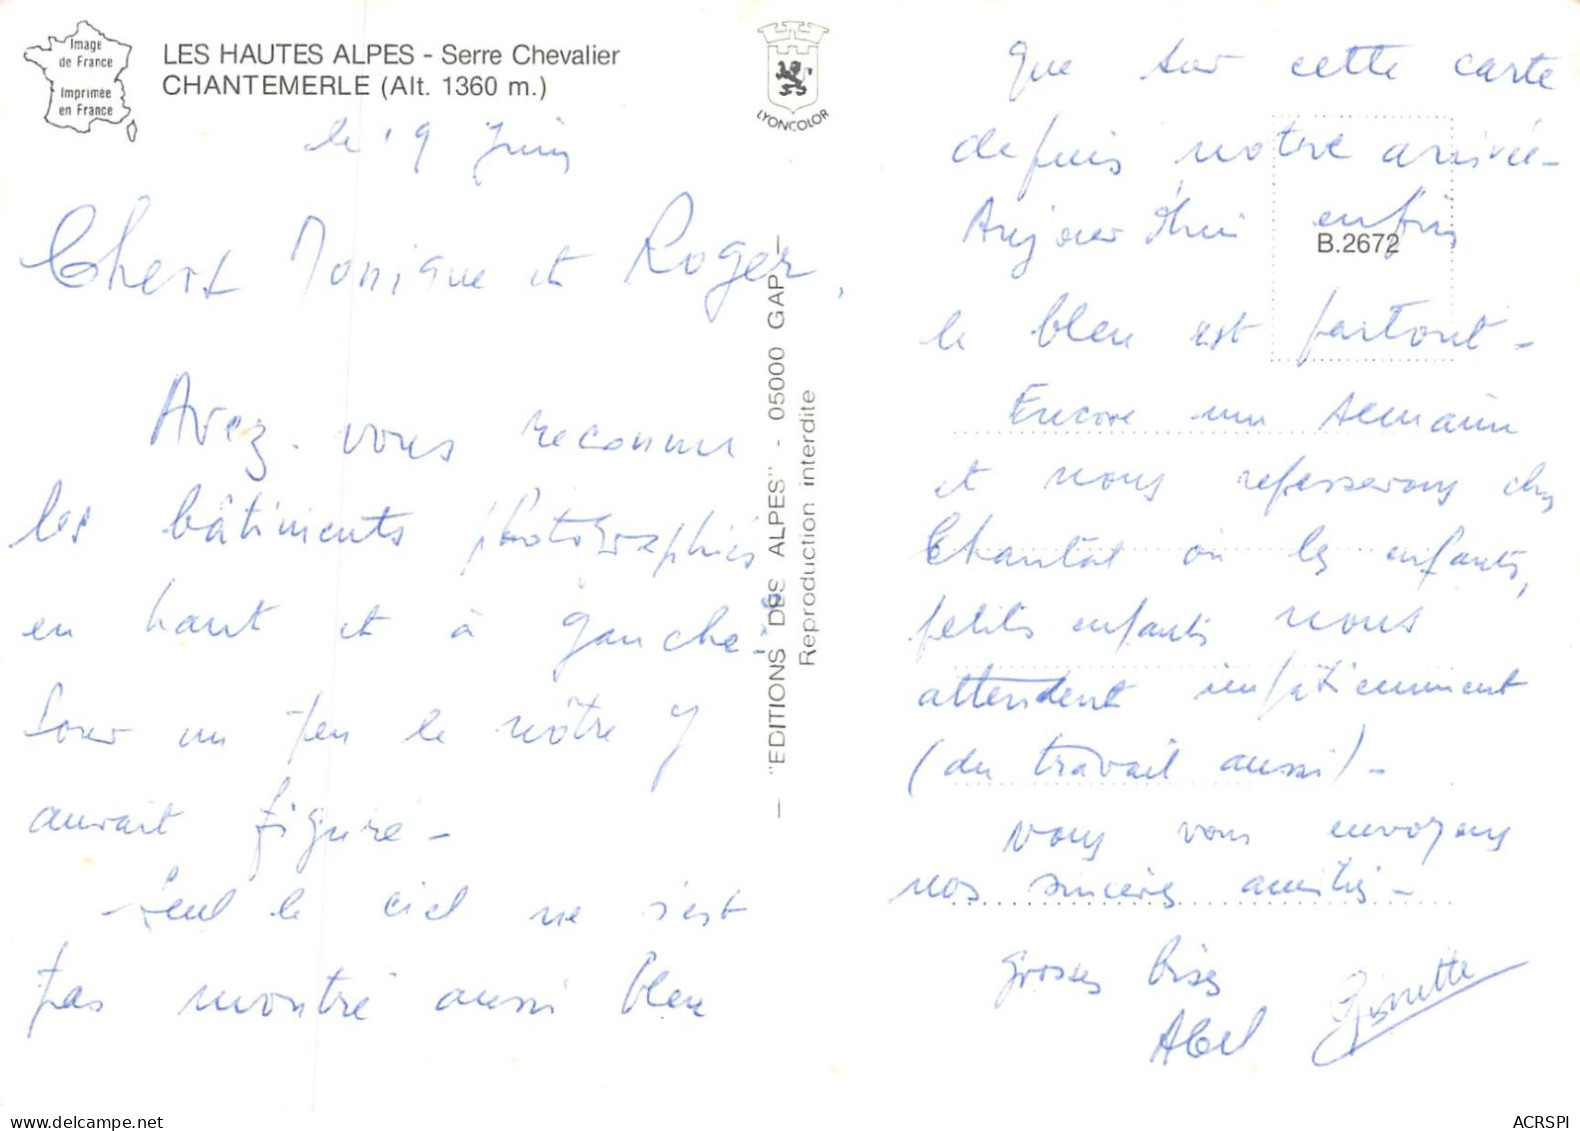 Image
de France
Imprimée
en France
LES HAUTES ALPES - Serre Chevalier
CHANTEMERLE (Alt. 1360 m.)
LYONCOLOR
le 19 Juin
Chers Monique et Roger,
Avez-vous reconnu
les bâtiments photographiés
en haut et à gauche -
Pour un peu le nôtre y
aurait figuré -
Seul le ciel ne s'est
pas montré aussi bleu
"EDITIONS DES ALPES" - 05000 GAP
Reproduction interdite
que sur cette carte
depuis notre arrivée -
Aujourd'hui enfin
B.2672
le bleu est partout -
Encore une semaine
et nous repasserons chez
Chantal où les enfants,
petits enfants nous
attendent impatiemment
(du travail aussi) -
Nous vous envoyons
nos sincères amitiés -
grosses bises
Abel Ginette
ACRSPI